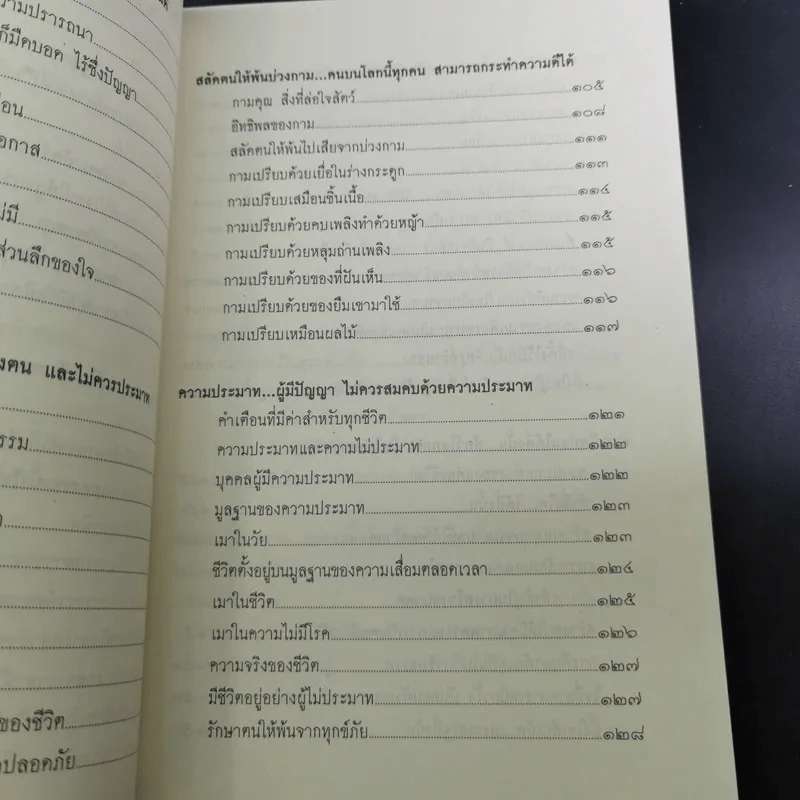 วามปรารถนา
ก็มืดบอด ไร้ซึ่งปัญญา
อน
อกาส
ม่มี
ส่วนลึกของใจ
งตน และไม่ควรประมาท
รรม
ของชีวิต
ปลอดภัย
สลัดตนให้พ้นบ่วงกาม...คนบนโลกนี้ทุกคน สามารถกระทำความดีได้
กามคุณ สิ่งที่ล่อใจสัตว์ ๑๐๕
อิทธิพลของกาม ๑๐๘
สลัดตนให้พ้นไปเสียจากบ่วงกาม ๑๑๑
กามเปรียบด้วยเยื่อในร่างกระดูก ๑๑๓
กามเปรียบเสมือนชิ้นเนื้อ ๑๑๔
กามเปรียบด้วยคบเพลิงทำด้วยหญ้า ๑๑๕
กามเปรียบด้วยหลุมถ่านเพลิง ๑๑๕
กามเปรียบด้วยของที่ฝันเห็น ๑๑๖
กามเปรียบด้วยของยืมเขามาใช้ ๑๑๖
กามเปรียบเหมือนผลไม้ ๑๑๗
ความประมาท...ผู้มีปัญญา ไม่ควรสมคบด้วยความประมาท
คำเตือนที่มีค่าสำหรับทุกชีวิต ๑๒๑
ความประมาทและความไม่ประมาท ๑๒๒
บุคคลผู้มีความประมาท ๑๒๒
มูลฐานของความประมาท ๑๒๓
เมาในวัย ๑๒๓
ชีวิตตั้งอยู่บนมูลฐานของความเสื่อมตลอดเวลา ๑๒๔
เมาในชีวิต ๑๒๕
เมาในความไม่มีโรค ๑๒๖
ความจริงของชีวิต ๑๒๗
มีชีวิตอยู่อย่างผู้ไม่ประมาท ๑๒๗
รักษาตนให้พ้นจากทุกข์ภัย ๑๒๘